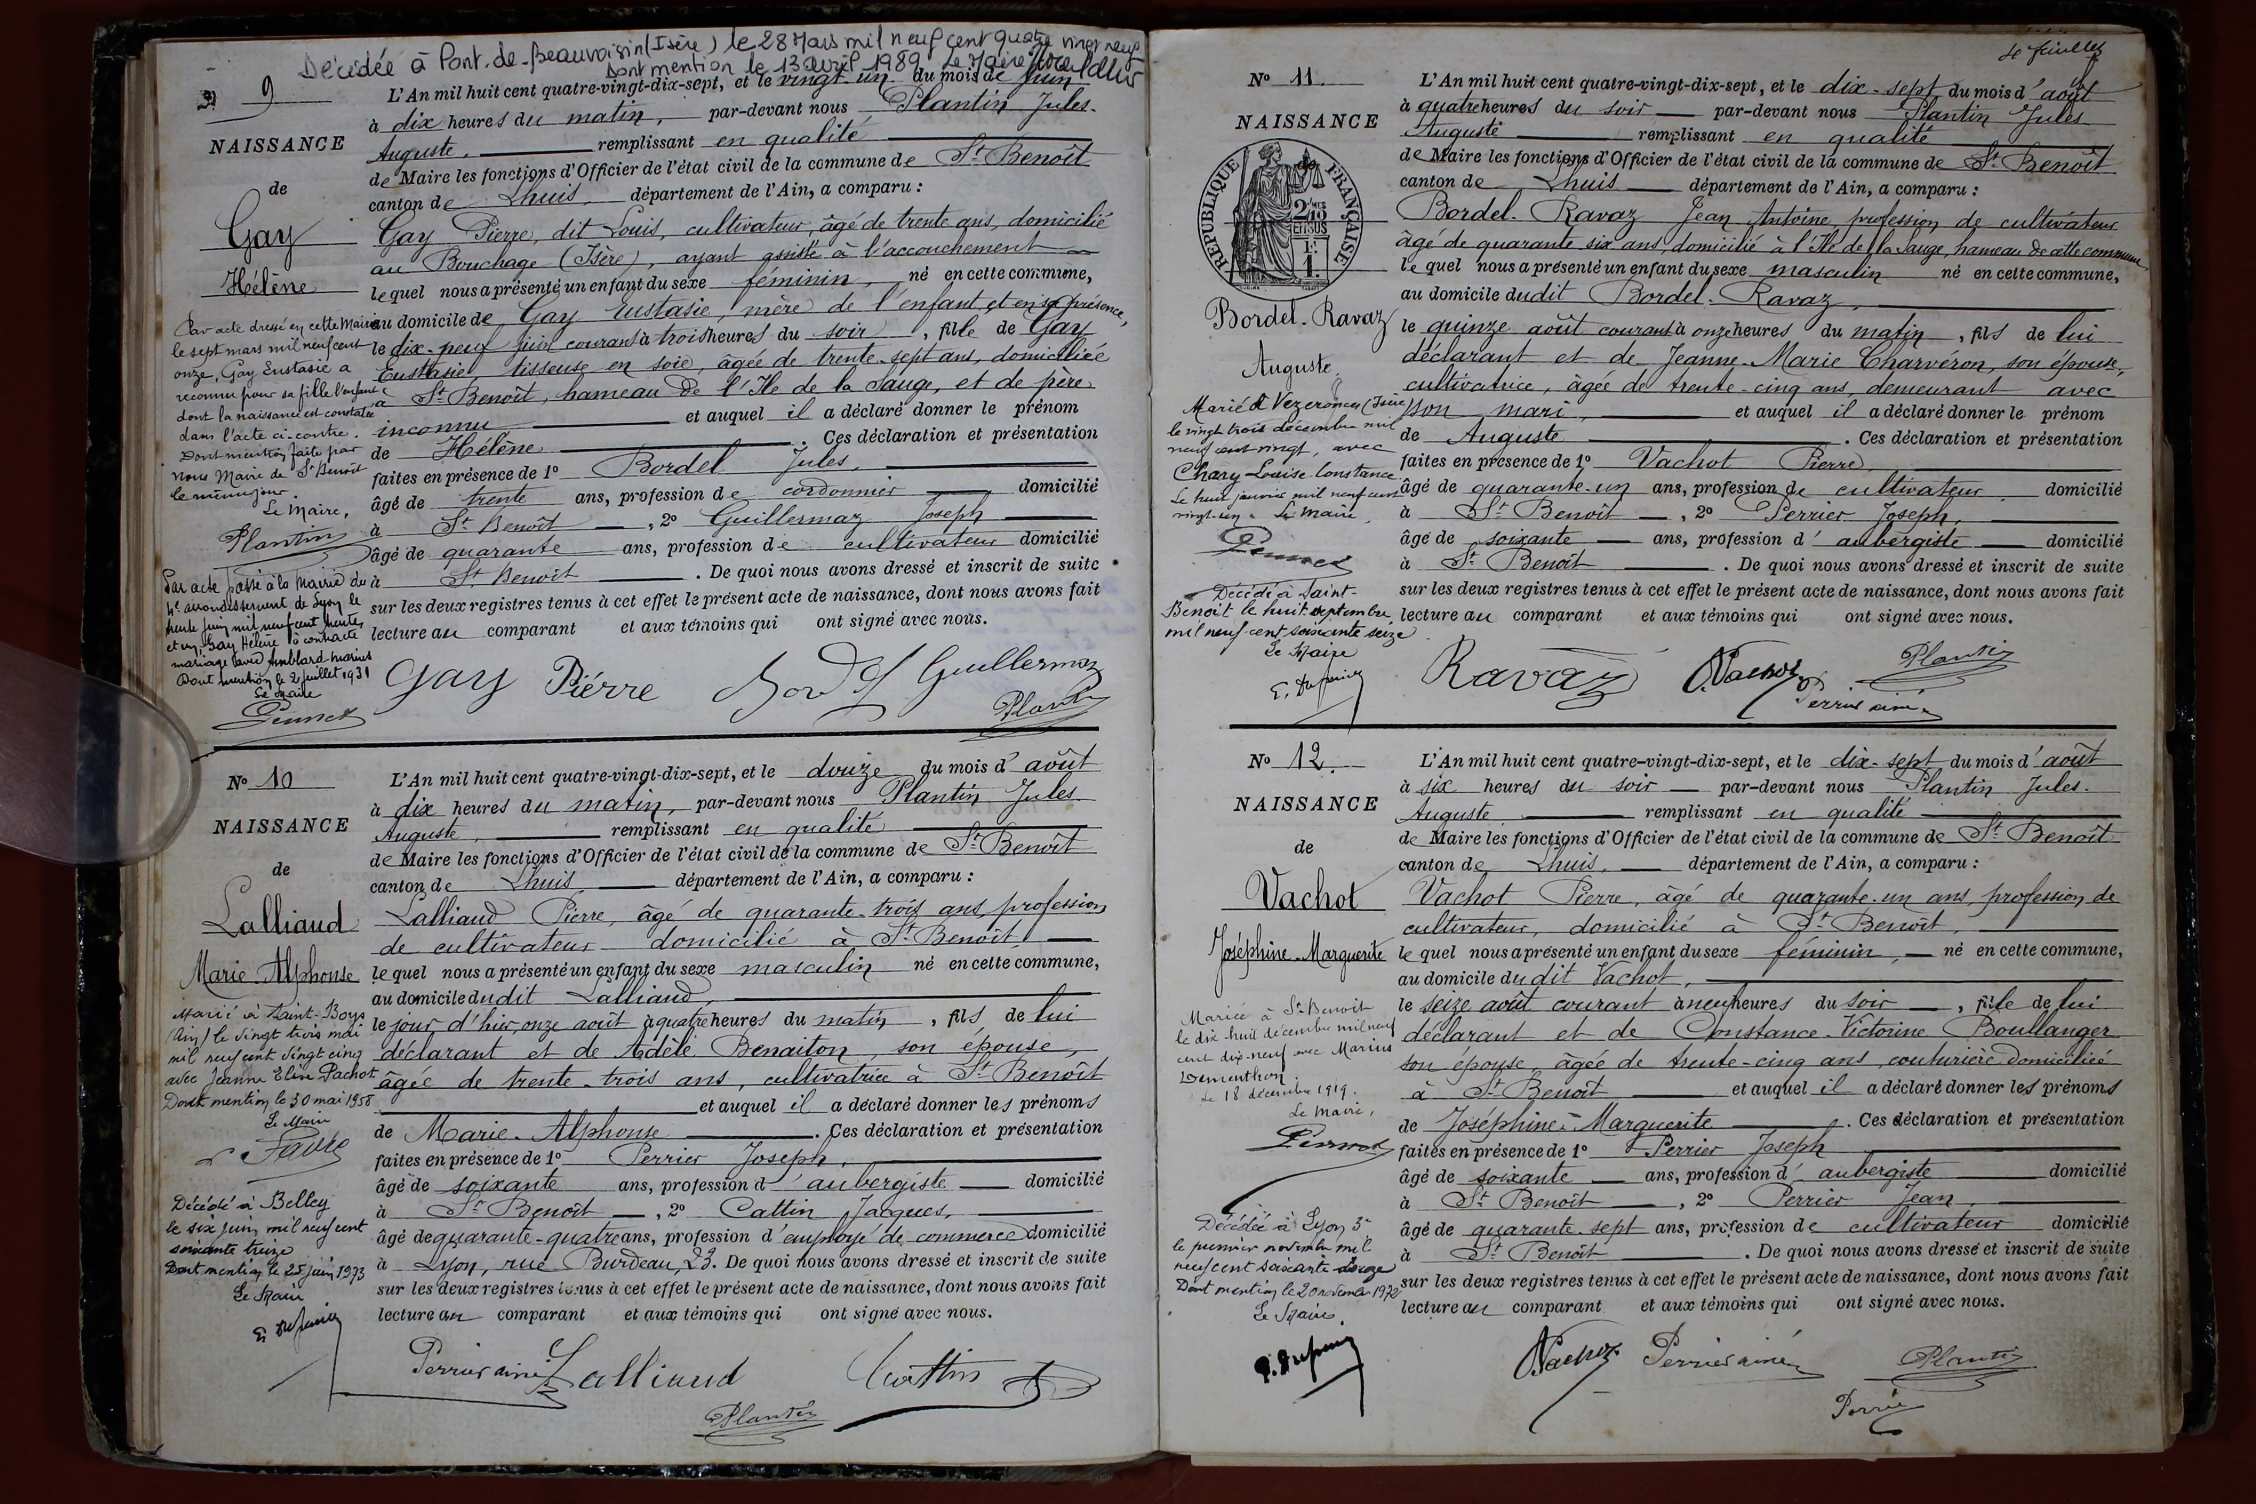 Décédée à Pont-de-Beauvoisin (Isère) le 28 Mars mil neuf cent quatre vingt neuf
Dont mention le 13 avril 1989 Le Maire
9
NAISSANCE
de
Gay
Hélène
Par acte dressé en cette Mairie
le sept mars mil neuf cent
onze, Gay Eustasie a
reconnu pour sa fille l'enfant
dont la naissance est constatée
dans l'acte ci-contre.
Dont mention faite par
nous Maire de St Benoît
le même jour.
Le Maire,
Plantin
Par acte passé à la Mairie du
4e arrondissement de Lyon le
trente juin mil neuf cent trente
et un, Gay Hélène a contracté
mariage avec Amblard Marius
Dont mention le 2 juillet 1931
Le Maire
Pennet
L'An mil huit cent quatre-vingt-dix-sept, et le vingt un du mois de juin
à dix heures du matin, par-devant nous Plantin Jules
Auguste, remplissant en qualité
de Maire les fonctions d'Officier de l'état civil de la commune de St Benoît
canton de Lhuis, département de l'Ain, a comparu :
Gay Pierre, dit Louis, cultivateur, âgé de trente ans, domicilié
au Bouchage (Isère), ayant assisté à l'accouchement
lequel nous a présenté un enfant du sexe féminin, né en cette commune,
au domicile de Gay Eustasie, mère de l'enfant et en sa présence,
le dix-neuf juin courant à trois heures du soir, fille de Gay
Eustasie tisseuse en soie, âgée de trente-sept ans, domiciliée
à St Benoît, hameau de l'Ile de la Sauge, et de père
inconnu et auquel il a déclaré donner le prénom
de Hélène. Ces déclaration et présentation
faites en présence de 1º Bordel Jules,
âgé de trente ans, profession de cordonnier domicilié
à St Benoît, 2º Guillermaz Joseph
âgé de quarante ans, profession de cultivateur domicilié
à St Benoît. De quoi nous avons dressé et inscrit de suite
sur les deux registres tenus à cet effet le présent acte de naissance, dont nous avons fait
lecture au comparant et aux témoins qui ont signé avec nous.
Gay Piérre Bordel Guillermaz
Plantin
No 10
NAISSANCE
de
Lalliaud
Marie-Alphonse
Marié à Saint-Bois
(Ain) le vingt trois mai
mil neuf cent vingt cinq
avec Jeanne Elise Pachot
Dont mention le 30 mai 1958
Le Maire
Favre
Décédé à Belley
le six juin mil neuf cent
soixante treize
Dont mention le 25 juin 1973
Le Maire
L'An mil huit cent quatre-vingt-dix-sept, et le douze du mois d'août
à dix heures du matin, par-devant nous Plantin Jules
Auguste, remplissant en qualité
de Maire les fonctions d'Officier de l'état civil de la commune de St Benoît
canton de Lhuis, département de l'Ain, a comparu :
Lalliaud Pierre, âgé de quarante-trois ans, profession
de cultivateur domicilié à St Benoît,
lequel nous a présenté un enfant du sexe masculin né en cette commune,
au domicile dudit Lalliaud,
le jour d'hier, onze août à quatre heures du matin, fils de lui
déclarant et de Adèle Benaiton, son épouse,
âgée de trente-trois ans, cultivatrice à St Benoît
et auquel il a déclaré donner les prénoms
de Marie-Alphonse. Ces déclaration et présentation
faites en présence de 1º Perrier Joseph,
âgé de soixante ans, profession d'aubergiste domicilié
à St Benoît, 2º Cattin Jacques,
âgé de quarante-quatre ans, profession d'employé de commerce domicilié
à Lyon, rue Burdeau, 23. De quoi nous avons dressé et inscrit de suite
sur les deux registres tenus à cet effet le présent acte de naissance, dont nous avons fait
lecture au comparant et aux témoins qui ont signé avec nous.
Perrier ainé Lalliaud Cattin
Plantin
4e feuillet
No 11
NAISSANCE
de
RÉPUBLIQUE FRANÇAISE
Bordel-Ravaz
Auguste
Marié à Vezeronce (Isère)
le vingt trois décembre mil
neuf cent vingt, avec
Chary Louise Constance
Le huit janvier mil neuf cent
vingt-un. Le Maire,
Pennet
Décédé à Saint-
Benoit le huit septembre
mil neuf cent soixante seize
Le Maire
L'An mil huit cent quatre-vingt-dix-sept, et le dix-sept du mois d'août
à quatre heures du soir par-devant nous Plantin Jules
Auguste remplissant en qualité
de Maire les fonctions d'Officier de l'état civil de la commune de St Benoît
canton de Lhuis département de l'Ain, a comparu :
Bordel-Ravaz Jean Antoine, profession de cultivateur
âgé de quarante six ans, domicilié à l'Ile de la Sauge, hameau de cette commune
lequel nous a présenté un enfant du sexe masculin né en cette commune,
au domicile dudit Bordel-Ravaz,
le quinze août courant à onze heures du matin, fils de lui
déclarant et de Jeanne-Marie Charvéron, son épouse,
cultivatrice, âgée de trente-cinq ans, demeurant avec
son mari, et auquel il a déclaré donner le prénom
de Auguste. Ces déclaration et présentation
faites en présence de 1º Vachot Pierre,
âgé de quarante-un ans, profession de cultivateur domicilié
à St Benoît, 2º Perrier Joseph,
âgé de soixante ans, profession d'aubergiste domicilié
à St Benoît. De quoi nous avons dressé et inscrit de suite
sur les deux registres tenus à cet effet le présent acte de naissance, dont nous avons fait
lecture au comparant et aux témoins qui ont signé avec nous.
Ravaz Vachot Plantin
Perrier ainé
No 12
NAISSANCE
de
Vachot
Joséphine-Marguerite
Mariée à St Benoit
le dix-huit décembre mil neuf
cent dix-neuf avec Marius
Dementhon.
Le 18 décembre 1919.
Le Maire,
Pennet
Décédée à Lyon 3e
le premier novembre mil
neuf cent soixante douze
Dont mention le 20 novembre 1972
Le Maire,
L'An mil huit cent quatre-vingt-dix-sept, et le dix-sept du mois d'août
à six heures du soir par-devant nous Plantin Jules
Auguste remplissant en qualité
de Maire les fonctions d'Officier de l'état civil de la commune de St Benoît
canton de Lhuis, département de l'Ain, a comparu :
Vachot Pierre, âgé de quarante-un ans, profession de
cultivateur, domicilié à St Benoît,
lequel nous a présenté un enfant du sexe féminin, né en cette commune,
au domicile dudit Vachot,
le seize août courant à neuf heures du soir, fille de lui
déclarant et de Constance-Victorine Boullanger
son épouse âgée de trente-cinq ans, couturière domiciliée
à St Benoît et auquel il a déclaré donner les prénoms
de Joséphine-Marguerite. Ces déclaration et présentation
faites en présence de 1º Perrier Joseph
âgé de soixante ans, profession d'aubergiste domicilié
à St Benoît, 2º Perrier Jean,
âgé de quarante-sept ans, profession de cultivateur domicilié
à St Benoît. De quoi nous avons dressé et inscrit de suite
sur les deux registres tenus à cet effet le présent acte de naissance, dont nous avons fait
lecture au comparant et aux témoins qui ont signé avec nous.
Vachot Perrier ainé Plantin
Perrier